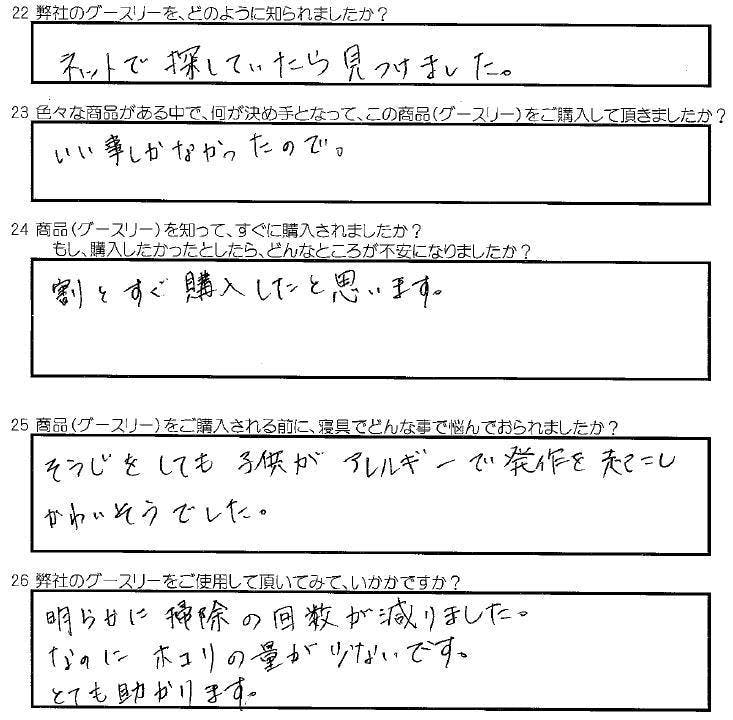 22 弊社のグースリーを、どのように知られましたか？
ネットで探していたら見つけました。
23 色々な商品がある中で、何が決め手となって、この商品(グースリー)をご購入して頂きましたか？
いい事しかなかったので。
24 商品(グースリー)を知って、すぐに購入されましたか？
もし、購入したかったとしたら、どんなところが不安になりましたか？
割とすぐ購入したと思います。
25 商品(グースリー)をご購入される前に、寝具でどんな事で悩んでおられましたか？
そうじをしても子供がアレルギーで発作を起こし
かわいそうでした。
26 弊社のグースリーをご使用して頂いてみて、いかかですか？
明らかに掃除の回数が減りました。
なのにホコリの量が少ないです。
とても助かります。